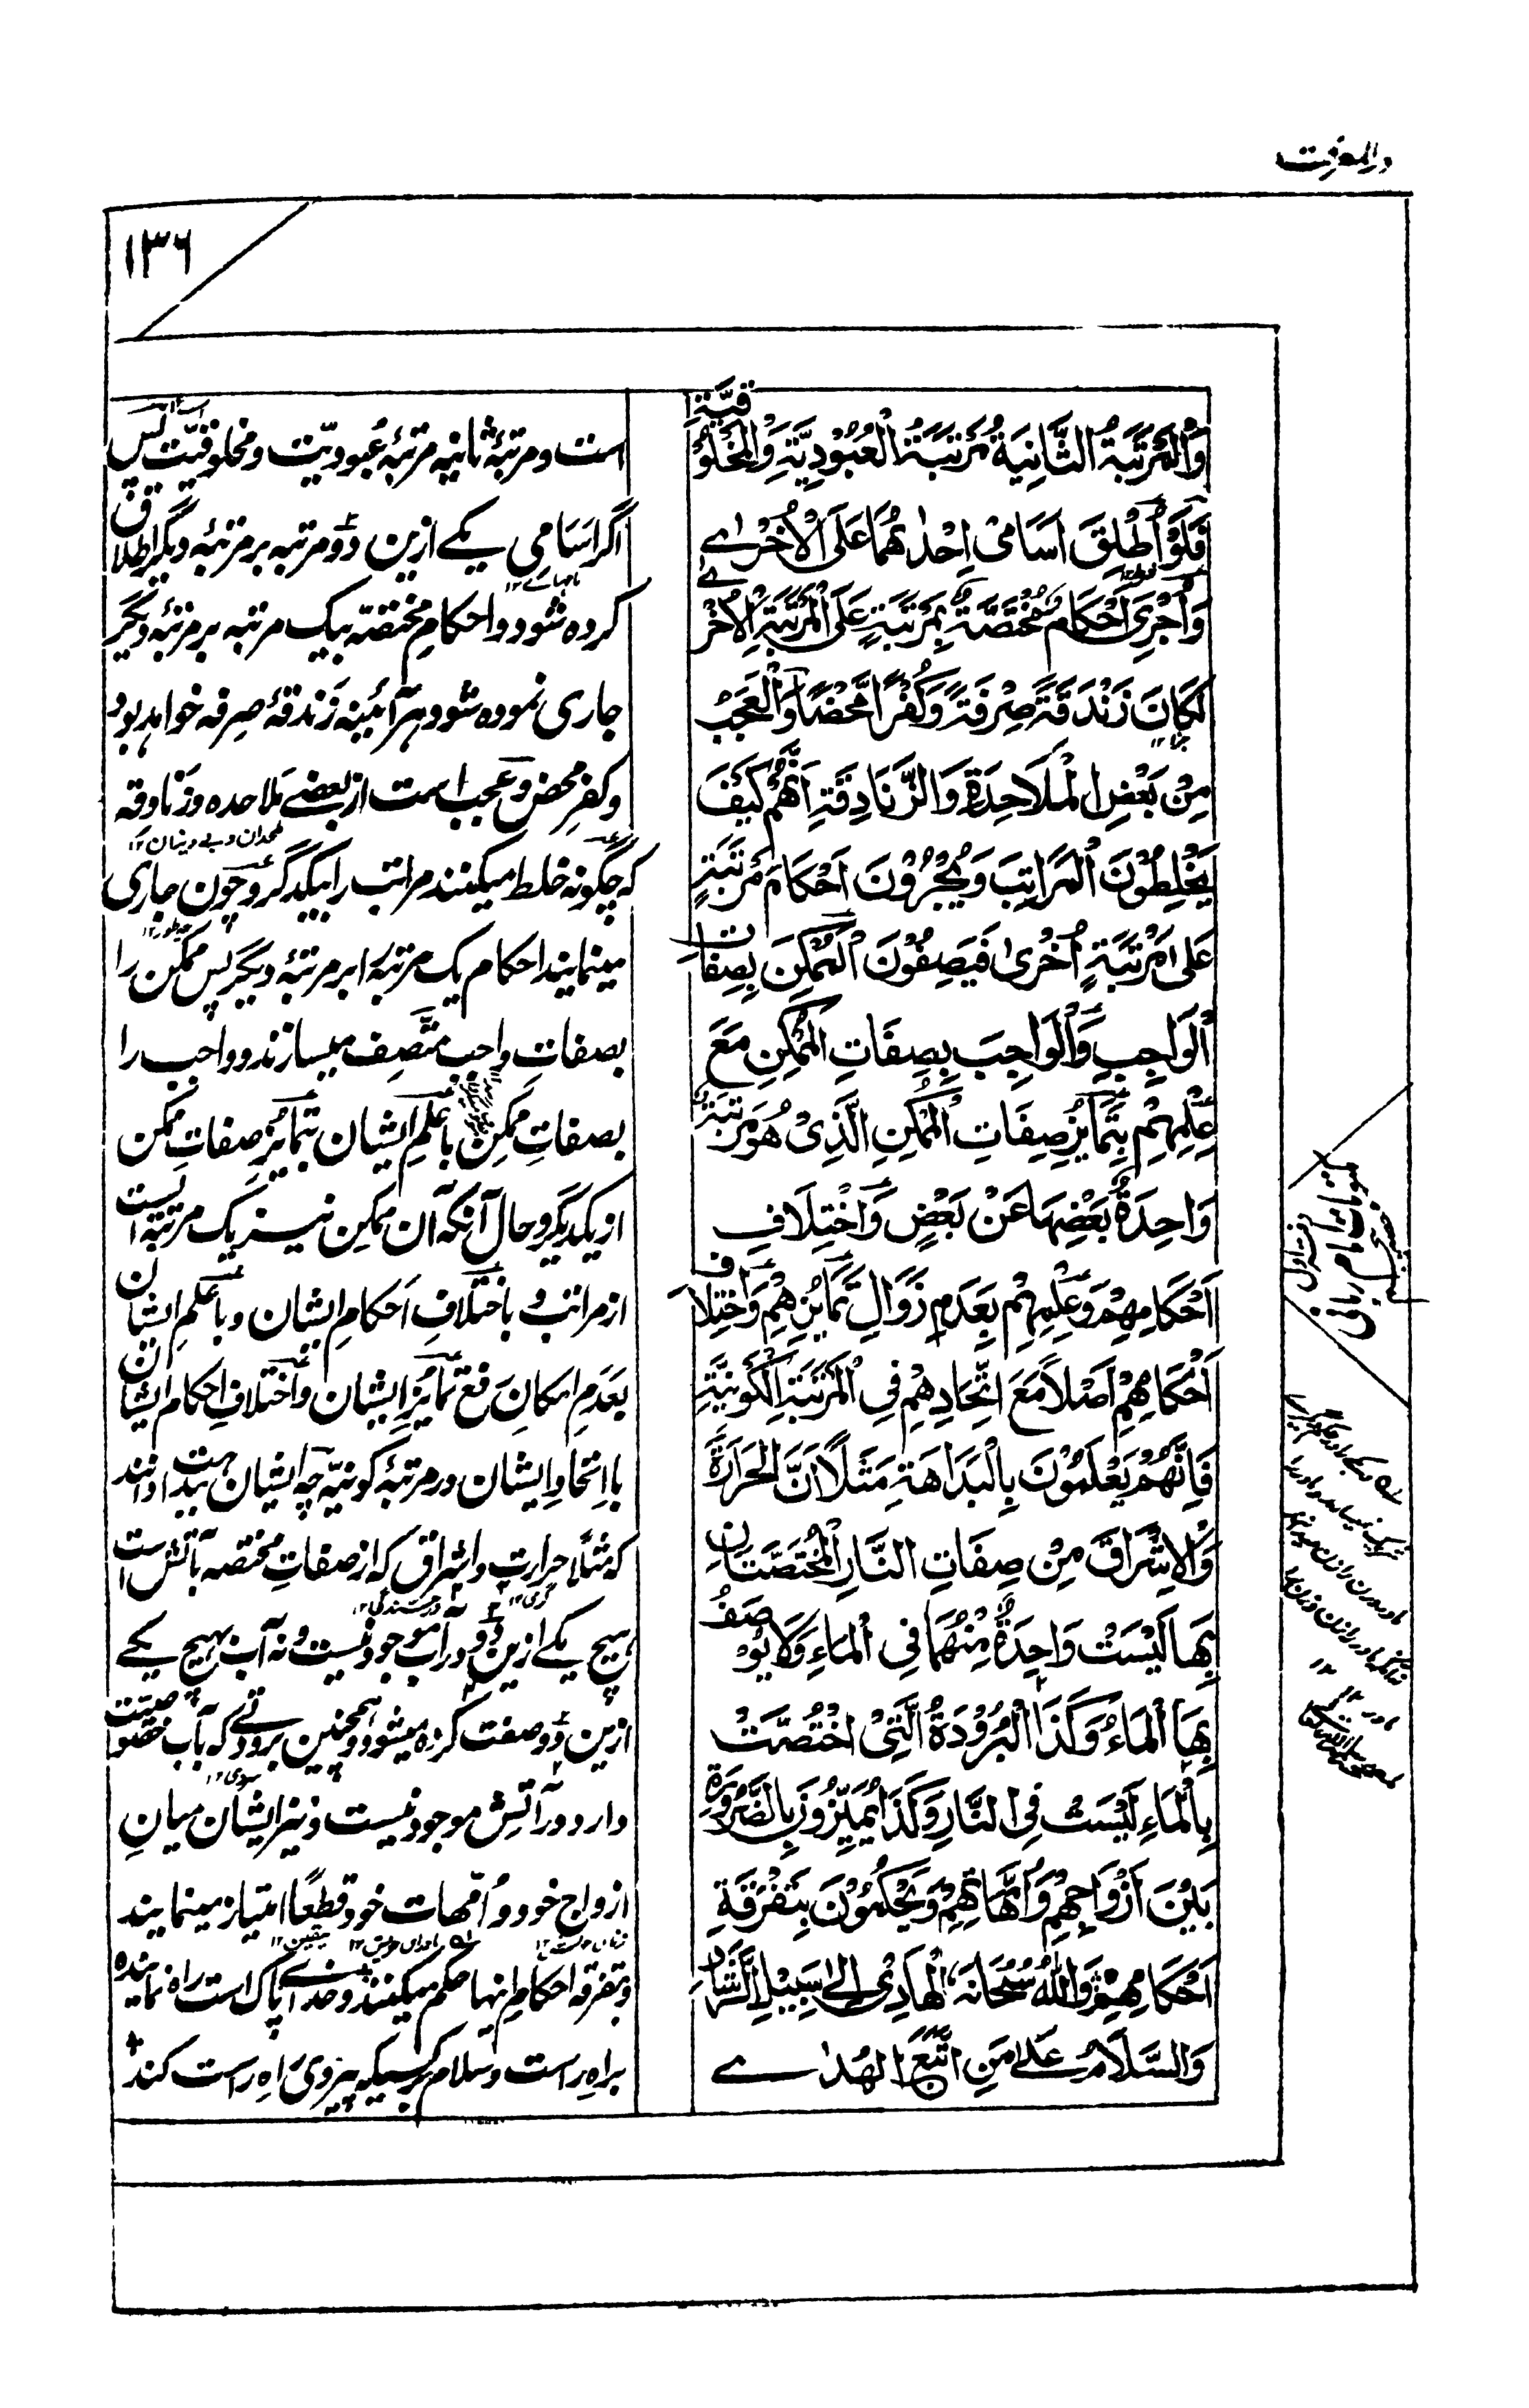 در المعرفت
۱۳۶
وَالْمَرْتَبَةُ الثَّانِيَةُ مَرْتَبَةُ الْعُبُودِيَّةِ وَالْمَخْلُوقِيَّةِ
فَلَوْ أُطْلِقَ اَسَامِیْ اِحْدٰهُمَا عَلَی الْاُخْرٰے
وَاُجْرِیَ اَحْکَامٌ مُخْتَصَّةٌ بِمَرْتَبَةٍ عَلَی الْمَرْتَبَةِ الْاُخْرٰے
لَکَانَ زَنْدَقَةً صِرْفَةً وَکُفْرًا مَّحْضًا وَالْعَجَبُ
مِنْ بَعْضِ الْمَلَاحِدَةِ وَالزَّنَادِقَةِ اَنَّهُمْ کَیْفَ
یَخْلِطُوْنَ الْمَرَاتِبَ وَیُجْرُوْنَ اَحْکَامَ مَرْتَبَةٍ
عَلٰی مَرْتَبَةٍ اُخْرٰی فَیَصِفُوْنَ الْمُمْکِنَ بِصِفَاتِ
الْوَاجِبِ وَالْوَاجِبَ بِصِفَاتِ الْمُمْکِنِ مَعَ
عِلْمِهِمْ بِتَمَایُزِ صِفَاتِ الْمُمْکِنِ الَّذِیْ هُوَ مَرْتَبَةٌ
وَاحِدَةٌ بَعْضِهَا عَنْ بَعْضٍ وَاخْتِلَافِ
اَحْکَامِهِمْ وَعِلْمِهِمْ بِعَدَمِ زَوَالِ تَمَایُزِهِمْ وَاخْتِلَافِ
اَحْکَامِهِمْ اَصْلًا مَعَ اتِّحَادِهِمْ فِی الْمَرْتَبَةِ الْکَوْنِیَّةِ
فَاِنَّهُمْ یَعْلَمُوْنَ بِالْبَدَاهَةِ مَثَلًا اَنَّ الْحَرَارَةَ
وَالْاِشْرَاقَ مِنْ صِفَاتِ النَّارِ الْمُخْتَصَّتَانِ
بِهَا لَیْسَتْ وَاحِدَةٌ مِنْهُمَا فِی الْمَاءِ وَلَا یُوْصَفُ
بِهَا الْمَاءُ وَکَذَا الْبُرُوْدَةُ الَّتِیْ اخْتُصَّتْ
بِالْمَاءِ لَیْسَتْ فِی النَّارِ وَکَذَا یُمَیِّزُوْنَ بِالضَّرُوْرَةِ
بَیْنَ اَزْوَاجِهِمْ وَاُمَّهَاتِهِمْ وَیَحْکُمُوْنَ بِتَفْرِقَةِ
اَحْکَامِهِمْ وَاللّٰهُ سُبْحَانَهُ الْهَادِیْ اِلٰی سَبِیْلِ الرَّشَادِ
وَالسَّلَامُ عَلٰی مَنِ اتَّبَعَ الْهُدٰے
است و مرتبۂ ثانیہ مرتبۂ عُبودیّت و مخلوقیّت است پس
اگر اَسَامِی یکے ازین دو مرتبہ بر مرتبۂ دیگر اطلاق
کردہ شود و احکامِ مختصّہ بیک مرتبہ بر مرتبۂ دیگر
جاری نمودہ شود ہرآئینہ زَندقۂ صِرفہ خواہد بود
و کفرِ محض و عجب است از بعضے مَلاحدہ و زَنادقہ
کہ چگونہ خلط میکنند مراتب را بیکدگر و چون جاری
مینمایند احکام یک مرتبہ را بر مرتبۂ دیگر پس ممکن را
بصفاتِ واجب متّصف میسازند و واجب را
بصفاتِ ممکن با علمِ ایشان بتمایُزِ صفاتِ ممکن
از یکدیگر و حال آنکہ آن ممکن نیز یک مرتبہ ایست
از مراتب و باختلافِ اَحکامِ ایشان و با علمِ ایشان
بعَدمِ امکانِ رفع تمایُزِ ایشان و اختلافِ احکام ایشان
با اتحادِ ایشان در مرتبۂ کونیّہ چہ ایشان ببداہت دانند
کہ مثلاً حرارت و اشراق کہ از صفاتِ مختصہ بآتش است
ہیچ یکے ازین دو در آب موجود نیست و نہ آب بہیچ یکے
ازین دو صفت کردہ میشود و ہمچنین برودتے کہ بآب خصوصیّت
دارد در آتش موجود نیست و نیز ایشان میانِ
ازواج خود و اُمّہات خود قطعًا امتیاز مینمایند
و بتفرقہ احکام اینہا حکم میکنند و خدائے پاک است راہ نمایندہ
براہِ راست و سلام بر کسیکہ پیروی راہِ راست کند
مکتوبات امام ربانی
دفتر اول